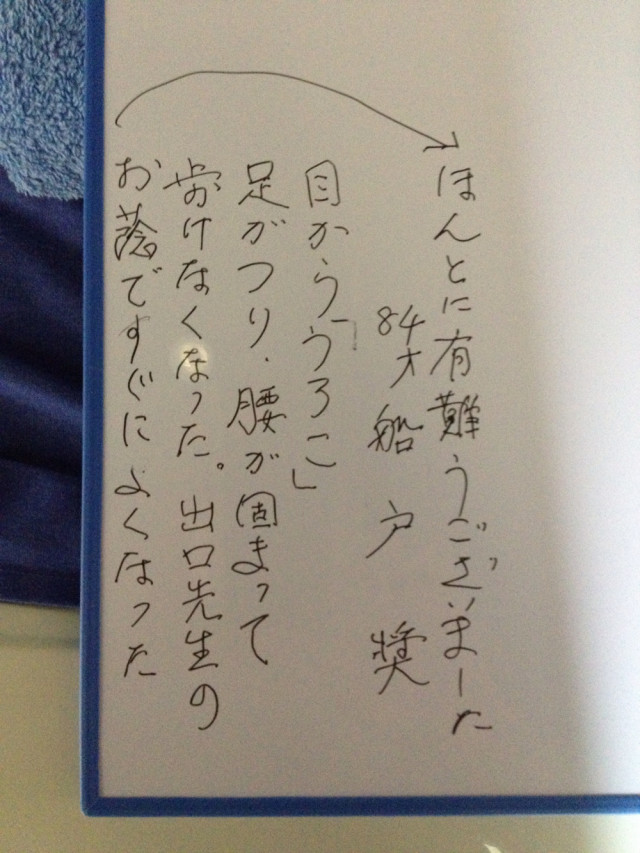 目から「うろこ」
足がつり、腰が固まって
歩けなくなった。出口先生の
お蔭ですぐによくなった
ほんとに有難うございました
84才 船戸 奨